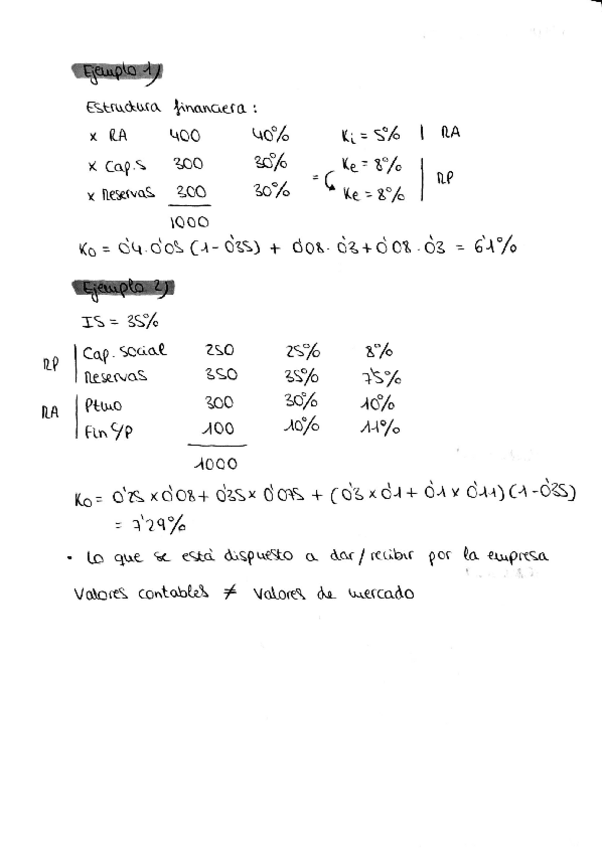 Ejemplo 1)
Estructura financiera:
x RA 400 40% Ki = 5% | RA
x Cap.S 300 30% Ke = 8%
x Reservas 300 30% = Ke = 8% | RP
1000
Ko = 0'4·0'05 (1-0'35) + 0'08·0'3+0'08·0'3 = 6'1%
Ejemplo 2)
IS = 35%
RP | Cap. social 250 25% 8%
Reservas 350 35% 7'5%
RA | Ptmo 300 30% 10%
Fin C/P 100 10% 11%
1000
Ko = 0'25 x 0'08 + 0'35 x 0'075 + (0'3 x 0'1 + 0'1 x 0'11)(1-0'35)
= 7'29%
• Lo que se está dispuesto a dar/recibir por la empresa
Valores contables ≠ Valores de mercado